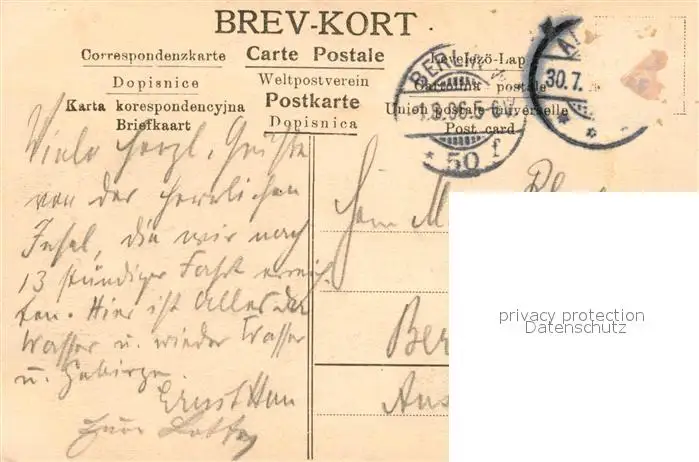 BREV-KORT
Correspondenzkarte
Carte Postale
Levelező-Lap
Dopisnice
Weltpostverein
Cartolina postale
Karta korespondencyjna
Postkarte
Union postale universelle
Briefkaart
Dopisnica
Post card
BERLIN W.
1.8.06.5-6N.
* 50 f
30.7.
Viele herzl. Grüße
von der herrlichen
Insel, die wir nach
13 stündiger Fahrt erreich
ten. Hier ist Alles da
Wasser u. wieder Wasser
u. Gebirge.
Ernst
Herrn
Ber
privacy protection
Datenschutz